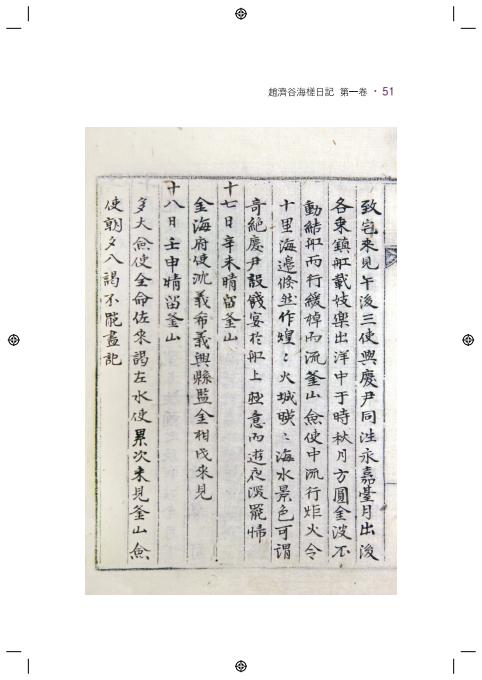 趙濟谷海槎日記 第一卷 · 51
致宅來見午後三使與慶尹同往永嘉臺月出後
各乘鎮舡載妓樂出洋中于時秋月方圓金波不
動結舡而行緩棹而流釜山僉使中流行炬火令
十里海邊倏然作煌〻火城暎〻海水景色可謂
奇絶慶尹設餞宴於舡上極意而遊夜深罷歸
十七日辛未晴留釜山
金海府使沈義希義興縣監金相戊來見
十八日壬申晴留釜山
多大僉使全命佐來謁左水使累次來見釜山僉
使朝夕入謁不能盡記